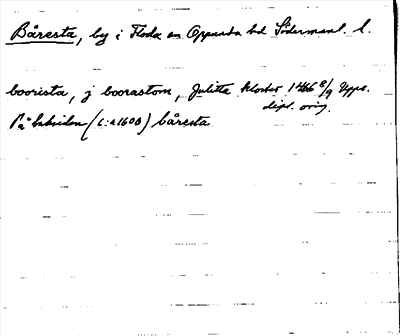 Båresta, by i Floda sn Oppunda hd Södermanl. l.
boorista, j boorastom, Julitta kloster 1466 8/9 Upps.
dipl. orig.
På baksidan (c:a 1600) båresta